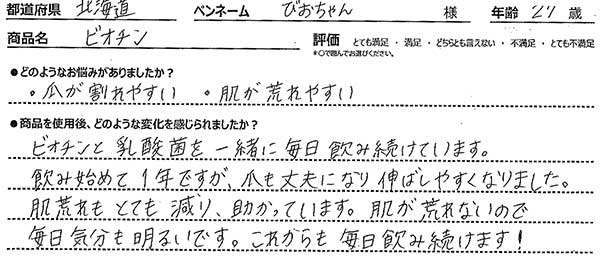 都道府県 北海道 ペンネーム びおちゃん 様 年齢 27 歳
商品名 ビオチン 評価 とても満足 ・ 満足 ・ どちらとも言えない ・ 不満足 ・ とても不満足
*○で囲んでお選びください。
●どのようなお悩みがありましたか？
・爪が割れやすい ・肌が荒れやすい
●商品を使用後、どのような変化を感じられましたか？
ビオチンと乳酸菌を一緒に毎日飲み続けています。
飲み始めて1年ですが、爪も丈夫になり伸ばしやすくなりました。
肌荒れもとても減り、助かっています。肌が荒れないので
毎日気分も明るいです。これからも毎日飲み続けます！